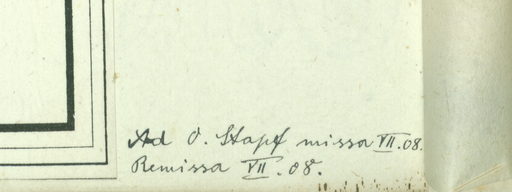 Ad O. Stapf missa VII.08.
Remissa VII.08.